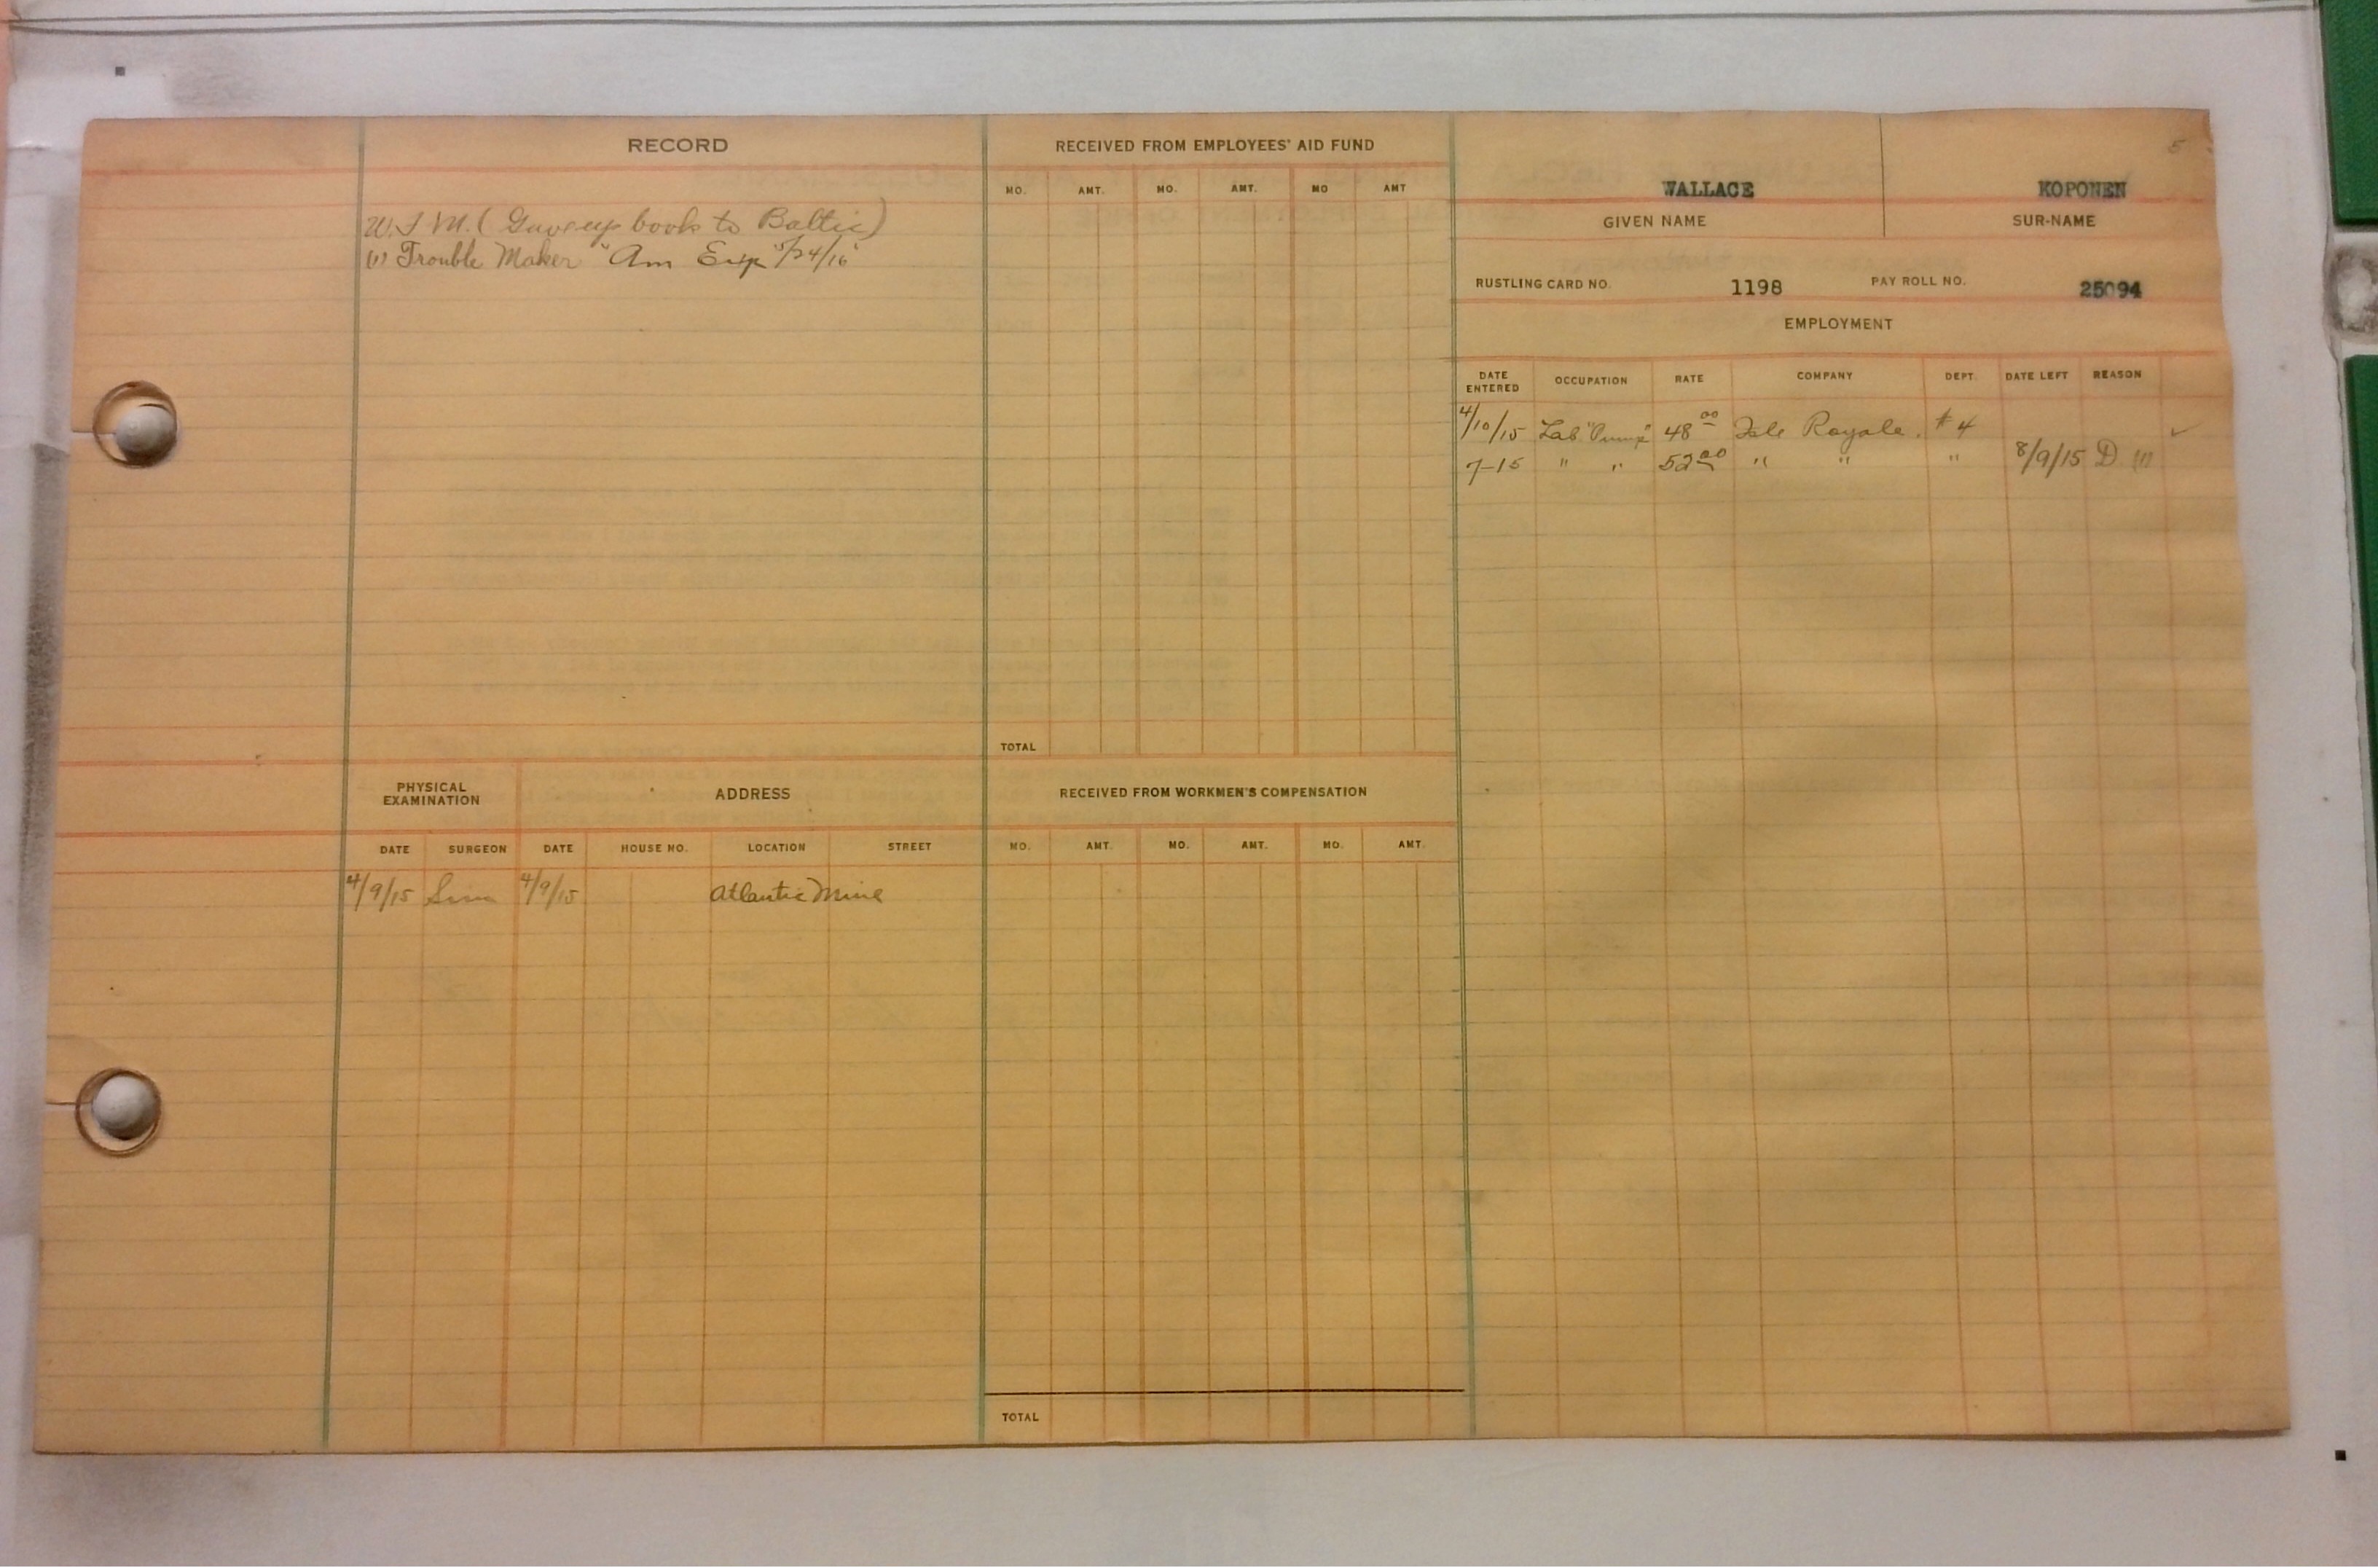 RECORD
W. F. M. (Gave up book to Baltic)
(1) Trouble Maker "Am Exp" 5/24/16
RECEIVED FROM EMPLOYEES' AID FUND
MO. AMT. MO. AMT. MO AMT
TOTAL
5
WALLACE KOPONEN
GIVEN NAME SUR-NAME
RUSTLING CARD NO. 1198 PAY ROLL NO. 25094
EMPLOYMENT
DATE ENTERED OCCUPATION RATE COMPANY DEPT. DATE LEFT REASON
4/10/15 Lab "Pump" 48 00 Isle Royale. #4
7-15 " " 52 00 " " " 8/9/15 D (1)
PHYSICAL EXAMINATION ADDRESS
DATE SURGEON DATE HOUSE NO. LOCATION STREET
4/9/15 4/9/15 Atlantic Mine
RECEIVED FROM WORKMEN'S COMPENSATION
MO. AMT. MO. AMT. MO. AMT.
TOTAL